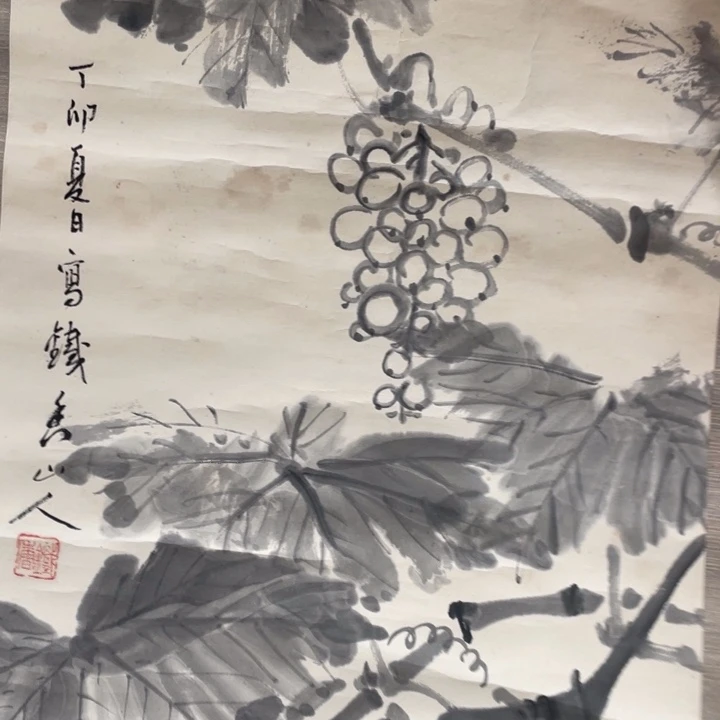 丁卯夏日寫鐵香山人